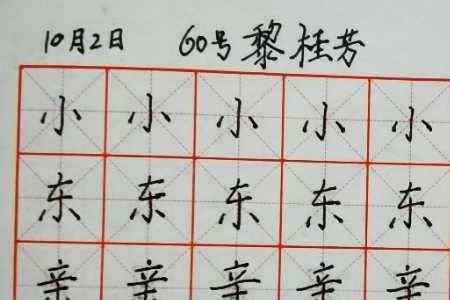 10月2日 60号 黎桂芳
小 小 小 小 小
东 东 东 东 东
亲 亲 亲 亲 亲